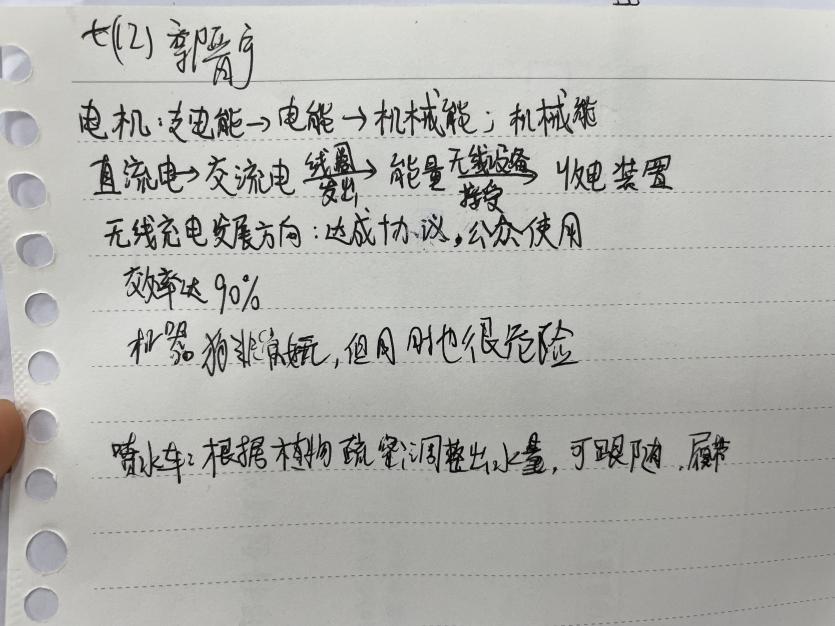 七(12) 郭晋宇
电机:电能→电能→机械能;机械能
直流电→交流电 线圈发出→ 能量 无线设备接受→ 收电装置
无线充电发展方向:达成协议,公众使用
效率达90%
机器狗非常好玩,但同时也很危险
喷水车:根据植物疏密调整出水量,可跟随,履带